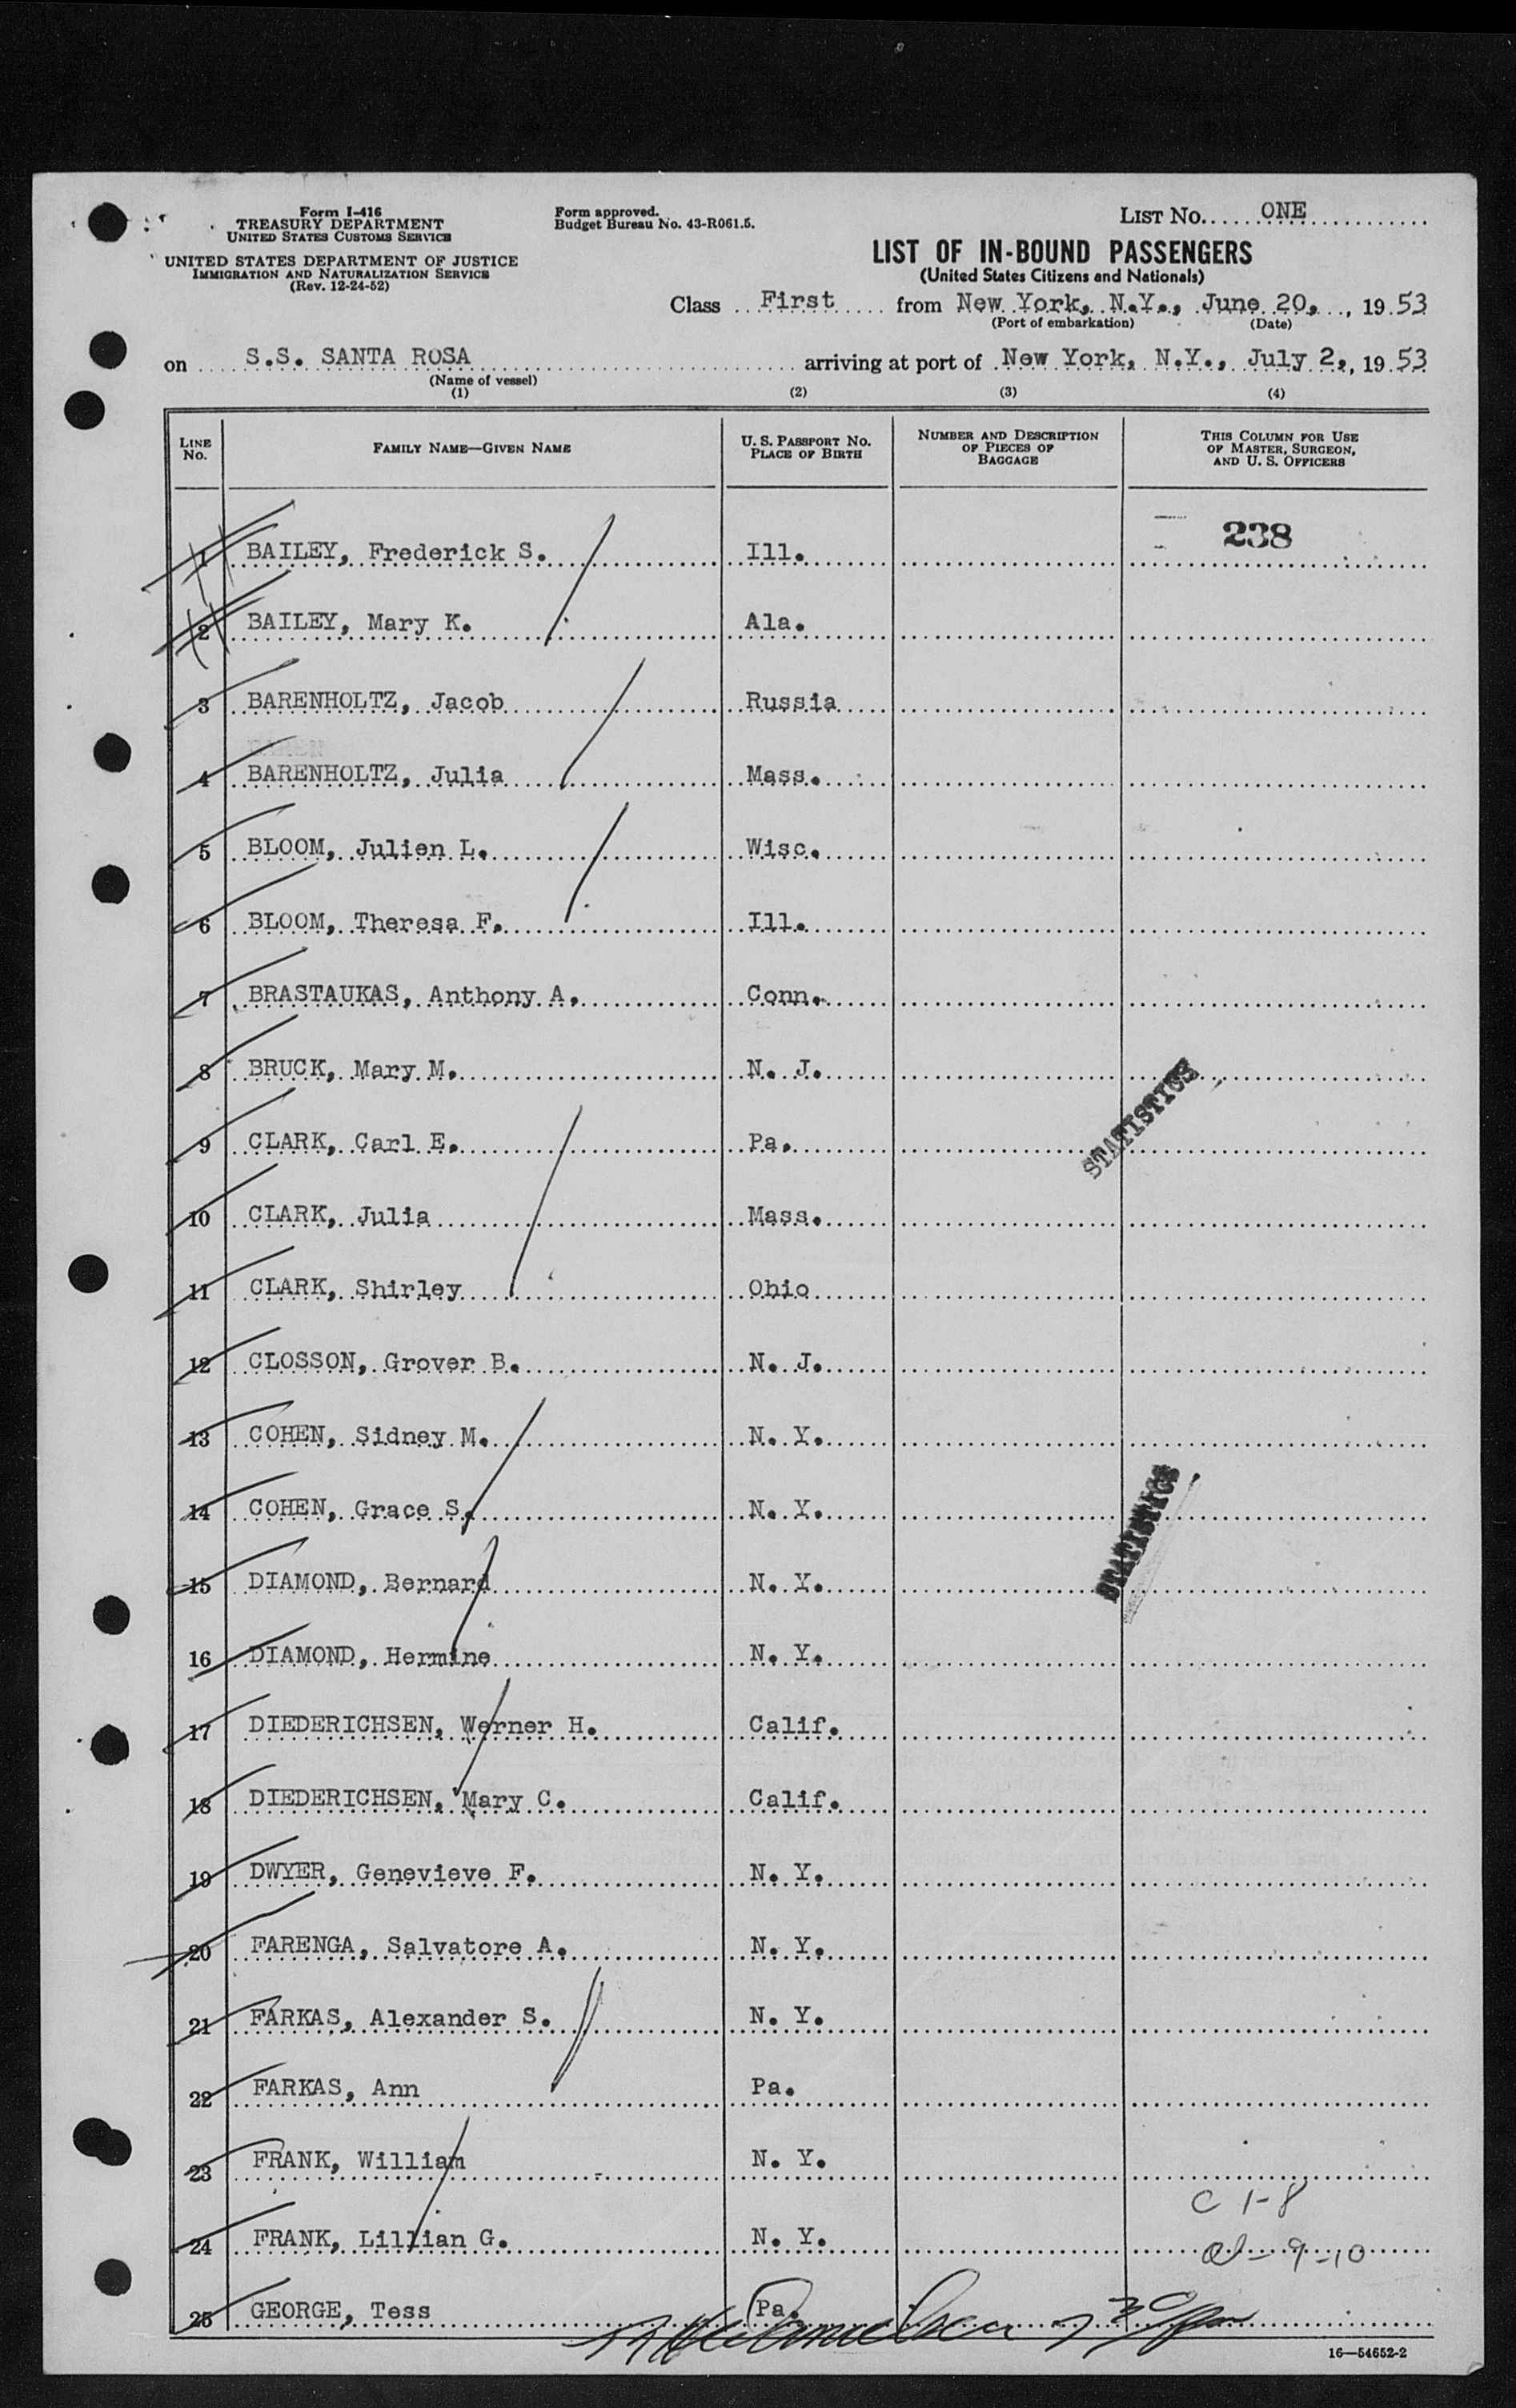 Form I-416
TREASURY DEPARTMENT
UNITED STATES CUSTOMS SERVICE
UNITED STATES DEPARTMENT OF JUSTICE
IMMIGRATION AND NATURALIZATION SERVICE
(Rev. 12-24-52)
Form approved.
Budget Bureau No. 43-R061.5.
LIST No. ONE
LIST OF IN-BOUND PASSENGERS
(United States Citizens and Nationals)
Class First from New York, N.Y., June 20, , 1953
(Port of embarkation) (Date)
on S.S. SANTA ROSA arriving at port of New York, N.Y., July 2, , 1953
(Name of vessel)
(1) (2) (3) (4)
LINE No. FAMILY NAME—GIVEN NAME U. S. PASSPORT No. PLACE OF BIRTH NUMBER AND DESCRIPTION OF PIECES OF BAGGAGE THIS COLUMN FOR USE OF MASTER, SURGEON, AND U. S. OFFICERS
238
1 BAILEY, Frederick S. Ill.
2 BAILEY, Mary K. Ala.
3 BARENHOLTZ, Jacob Russia
4 BARENHOLTZ, Julia Mass.
5 BLOOM, Julien L. Wisc.
6 BLOOM, Theresa F. Ill.
7 BRASTAUKAS, Anthony A. Conn.
8 BRUCK, Mary M. N. J.
STATISTICS
9 CLARK, Carl E. Pa.
10 CLARK, Julia Mass.
11 CLARK, Shirley Ohio
12 CLOSSON, Grover B. N. J.
13 COHEN, Sidney M. N. Y.
14 COHEN, Grace S. N. Y.
15 DIAMOND, Bernard N. Y.
16 DIAMOND, Hermine N. Y.
17 DIEDERICHSEN, Werner H. Calif.
18 DIEDERICHSEN, Mary C. Calif.
19 DWYER, Genevieve F. N. Y.
20 FARENGA, Salvatore A. N. Y.
21 FARKAS, Alexander S. N. Y.
22 FARKAS, Ann Pa.
23 FRANK, William N. Y.
C 1-8
24 FRANK, Lillian G. N. Y.
9-10
25 GEORGE, Tess Pa.
16—54652-2